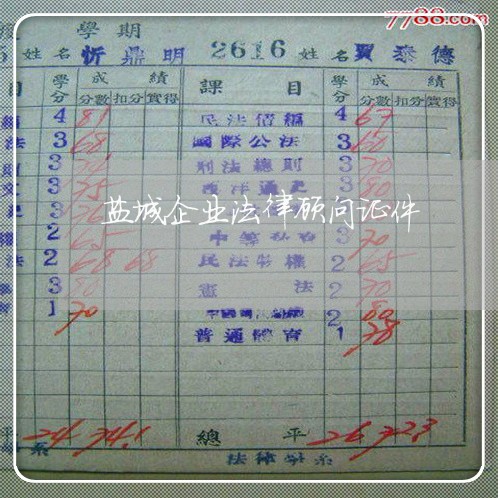 7788.com
學期
姓名 忻鼎明 2616 姓名 賈泰德
目 學分 成績 分數 扣分 實得 課目 學分 成績 分數 扣分 實得
4 81 民法債編 4 67
法 3 68 國際公法 3 60
3 刑法總則 3 70
3 75 西洋通史 3 80
盐城企业法律顾问证件
2 65 3 70
法 2 68 68 民法物權 2 65
3 80 憲法 2 70
1 70 2 80
普通體育 1 78
平 24 74.1 總平 26 72.3
系 法律學系